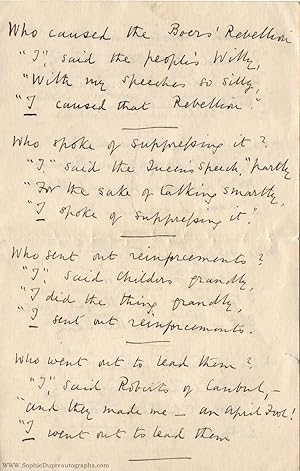 Who caused the Boers' Rebellion
"I", said the people's Willy,
"With my speeches so silly,
"I caused that Rebellion"
Who spoke of suppressing it?
"I," said the Queen's Speech, "partly
"For the sake of talking smartly,
"I spoke of suppressing it."
Who sent out reinforcements?
"I", said Childers grandly,
"I did the thing grandly,
"I sent out reinforcements.
Who went out to lead them?
"I", said Roberts of Caubul, –
"and they made me – an April Fool!
"I went out to lead them
www.SophieDupreautographs.com